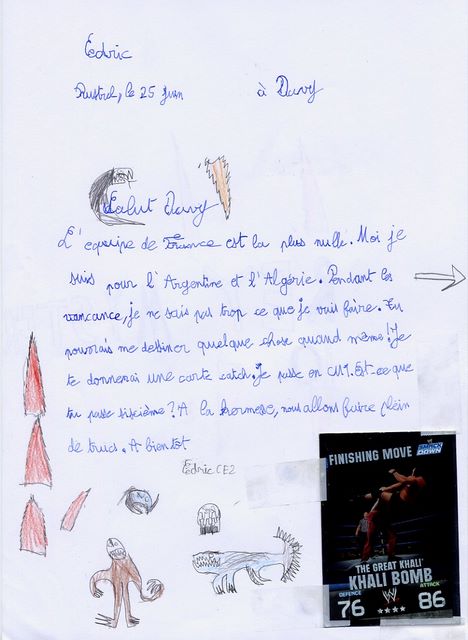 Cédric
le 25 juin
à Davy
Salut Davy
L'equipe de France est la plus nulle. Moi je
suis pour l'Argentine et l'Algérie. Pendant les
vancance, je ne sais pas trop ce que je vais faire. Tu
pourrais me dessiner quelque chose quand même! Je
te donnerai une carte catch. Je passe en CM1. Est-ce que
tu passe sisxième? A la kermesse, nous allons faire plein
de trucs. A bientôt
Cédric CE2
FINISHING MOVE
SMACK DOWN
THE GREAT KHALI'
KHALI BOMB
DEFENCE ATTACK
76 86